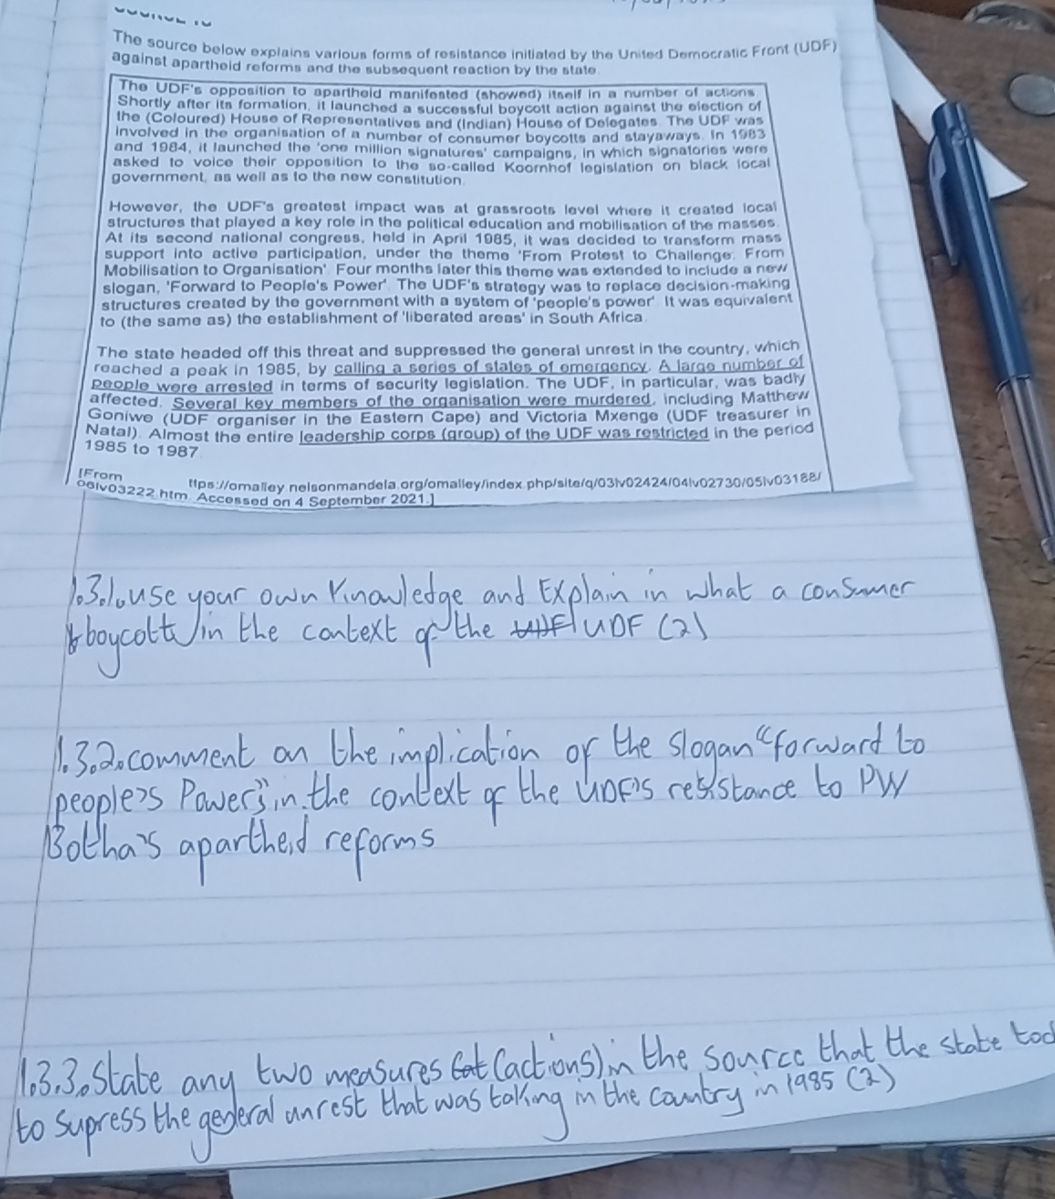 The source below explains various forms of resistance initiated by the United Democratic Front (UDF)
against apartheid reforms and the subsequent reaction by the state.
The UDF's opposition to apartheid manifested (showed) itself in a number of actions.
Shortly after its formation, it launched a successful boycott action against the election of
the (Coloured) House of Representatives and (Indian) House of Delegates. The UDF was
involved in the organisation of a number of consumer boycotts and stayaways. In 1983
and 1984, it launched the 'one million signatures' campaigns, in which signatories were
asked to voice their opposition to the so-called Koornhof legislation on black local
government, as well as to the new constitution.
However, the UDF's greatest impact was at grassroots level where it created local
structures that played a key role in the political education and mobilisation of the masses.
At its second national congress, held in April 1985, it was decided to transform mass
support into active participation, under the theme 'From Protest to Challenge. From
Mobilisation to Organisation'. Four months later this theme was extended to include a new
slogan, 'Forward to People's Power'. The UDF's strategy was to replace decision-making
structures created by the government with a system of 'people's power'. It was equivalent
to (the same as) the establishment of 'liberated areas' in South Africa.
The state headed off this threat and suppressed the general unrest in the country, which
reached a peak in 1985, by calling a series of states of emergency. A large number of
people were arrested in terms of security legislation. The UDF, in particular, was badly
affected. Several key members of the organisation were murdered, including Matthew
Goniwe (UDF organiser in the Eastern Cape) and Victoria Mxenge (UDF treasurer in
Natal). Almost the entire leadership corps (group) of the UDF was restricted in the period
1985 to 1987.
[From
ttps://omalley.nelsonmandela.org/omalley/index.php/site/q/03lv02424/04lv02730/05lv03188/
06lv03222.htm. Accessed on 4 September 2021.]
1.3.1. use your own knowledge and Explain in what a consumer
boycott in the context of the UDF (2)
1.3.2. comment on the implication of the slogan "forward to
people's Power's in the context of the UDF's resistance to PW
Botha's apartheid reforms
1.3.3. State any two measures (actions) in the source that the state too
to supress the general unrest that was taking in the country in 1985 (2)